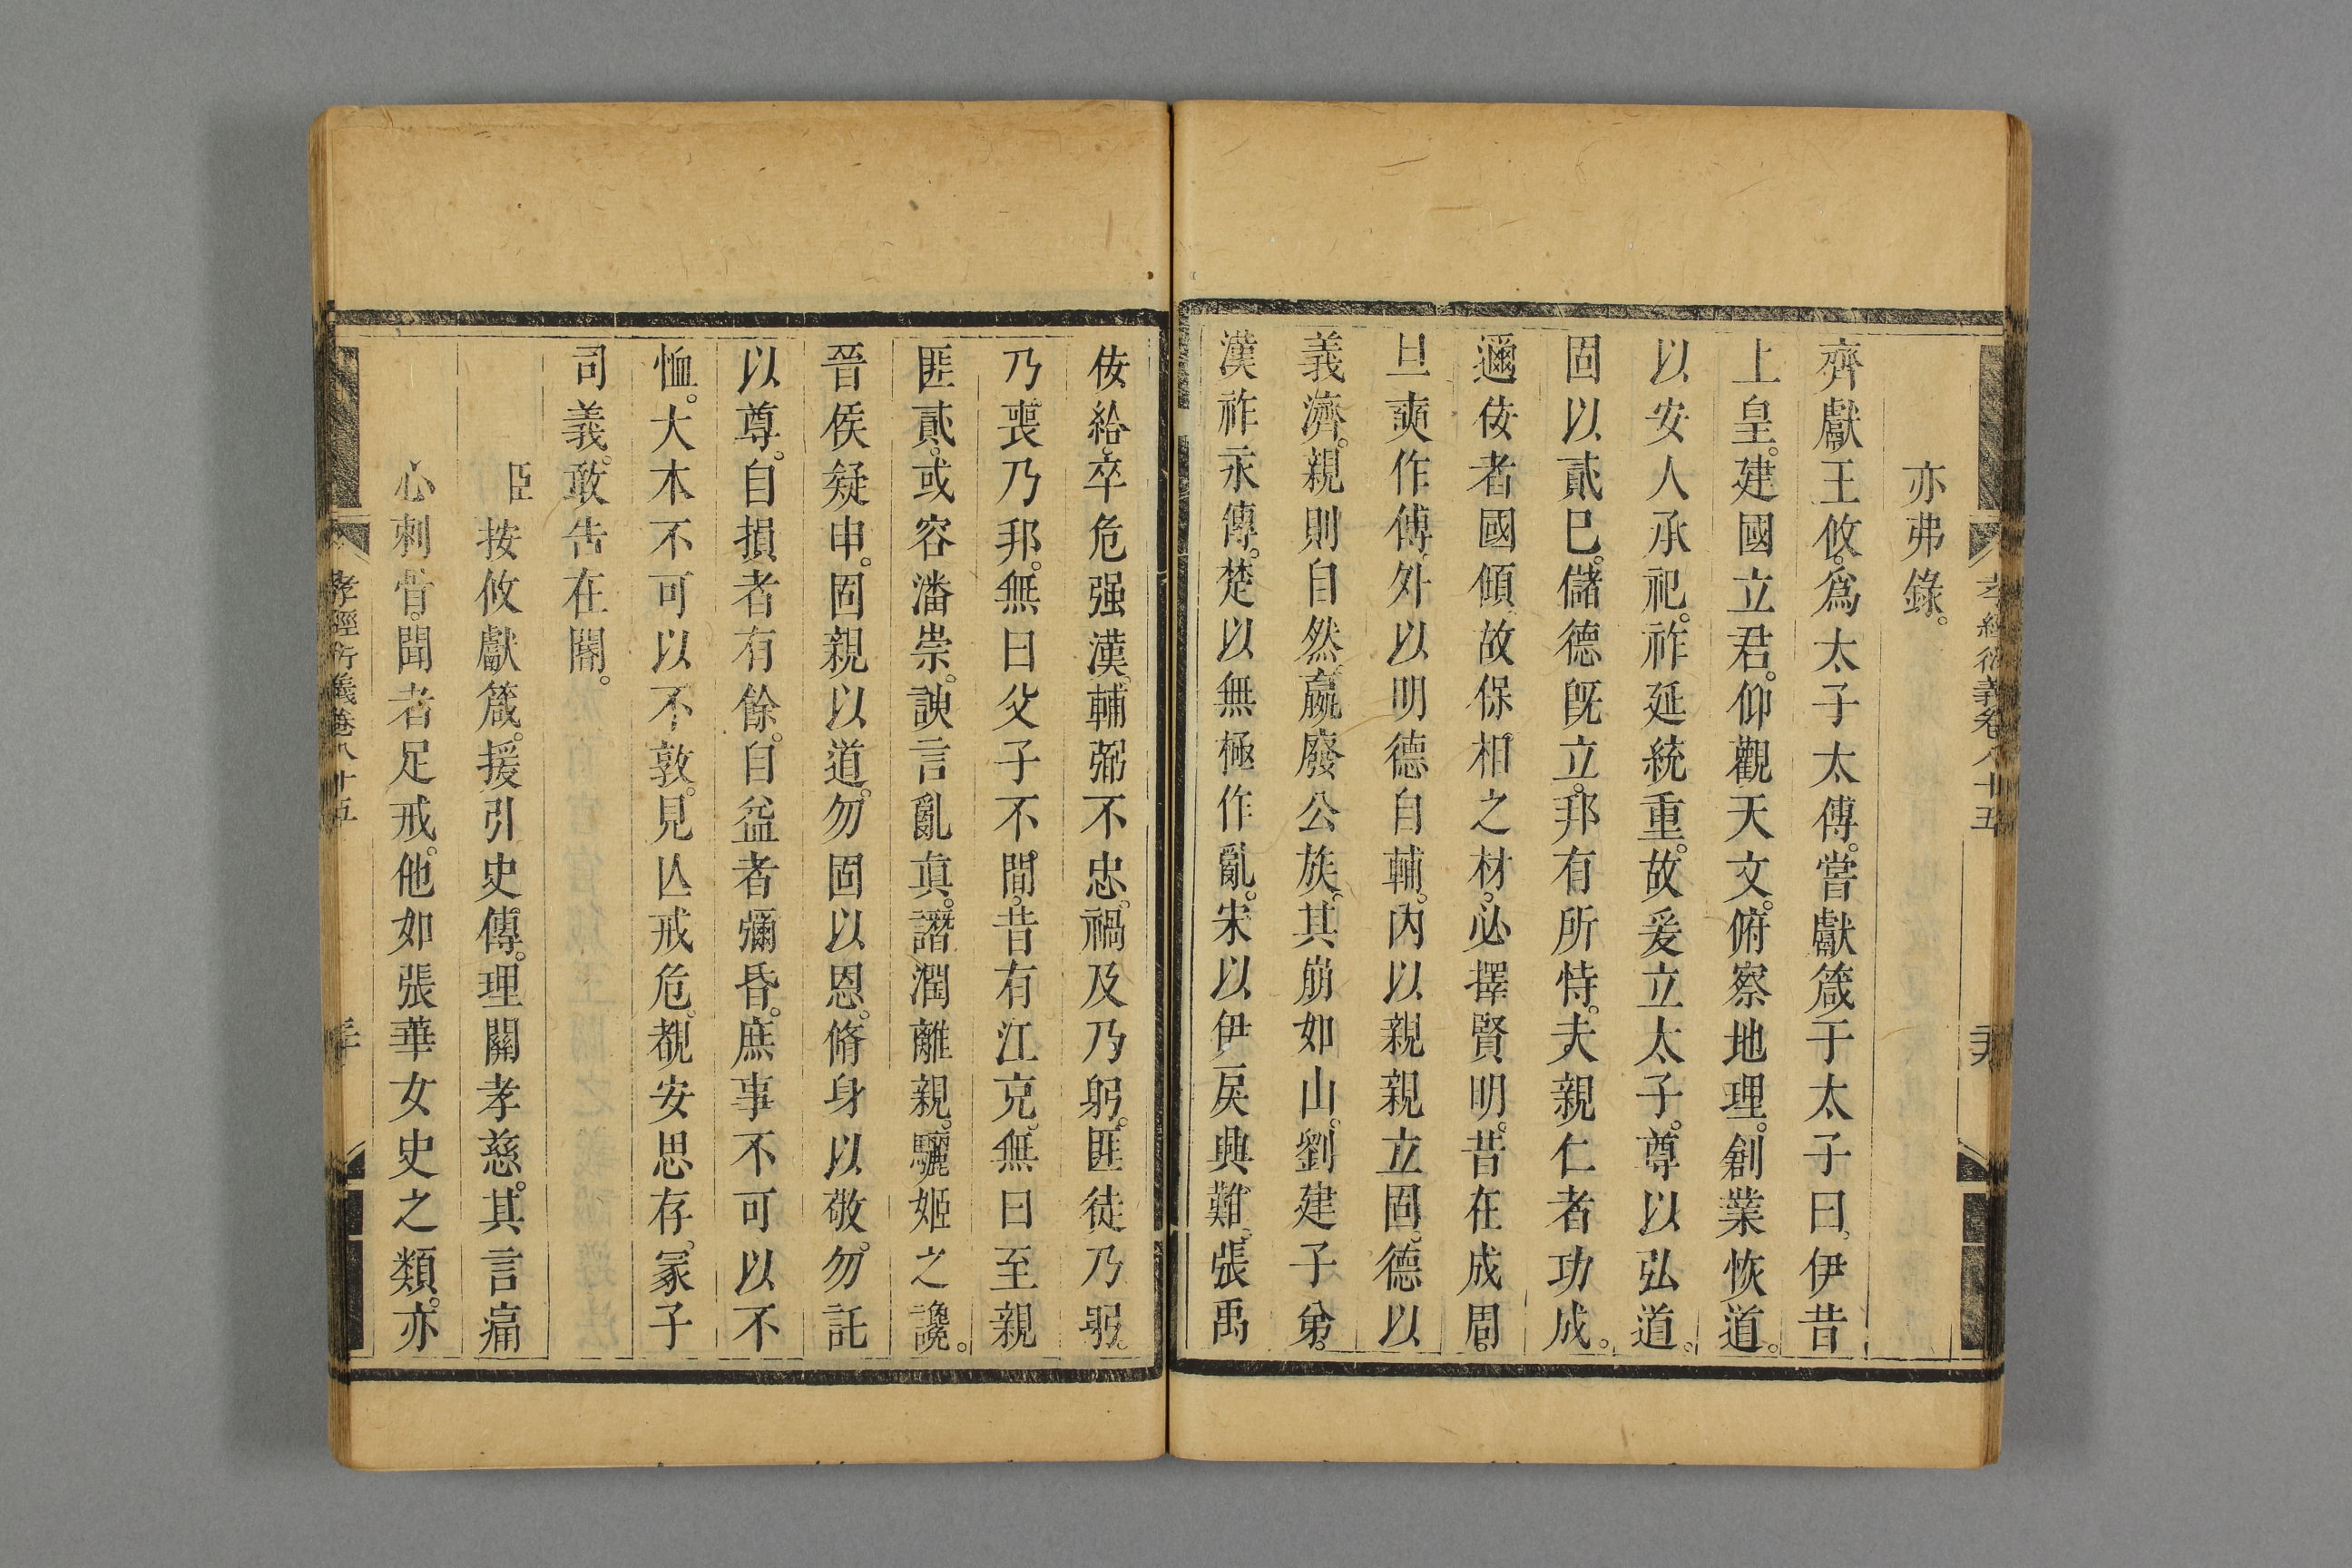 孝經衍義卷八十五
亦弗錄。
齊獻王攸。爲太子太傅。嘗獻箴于太子曰、伊昔
上皇。建國立君。仰觀天文。俯察地理。創業恢道。
以安人承祀。祚延統重。故爰立太子。尊以弘道。
固以貳已。儲德旣立。邦有所恃。夫親仁者功成。
邇侫者國傾。故保相之材。必擇賢明。昔在成周。
旦奭作傅。外以明德自輔。內以親親立固。德以
義濟。親則自然。嬴廢公族。其崩如山。劉建子弟。
漢祚永傳。楚以無極作亂。宋以伊戾興難。張禹
侫給。卒危强漢。輔弼不忠。禍及乃躬。匪徒乃躬。
乃喪乃邦。無曰父子不間。昔有江充。無曰至親
匪貳。或容潘崇。諛言亂眞。譖潤離親。驪姬之讒。
晉侯疑申。固親以道。勿固以恩。脩身以敬。勿託
以尊。自損者有餘。自益者彌昏。庶事不可以不
恤。大本不可以不敦。見亾戒危。覩安思存。冢子
司義。敢告在闈。
臣按攸獻箴。援引史傳。理關孝慈。其言痛
心刺骨。聞者足戒。他如張華女史之類。亦
孝經衍義卷八十五